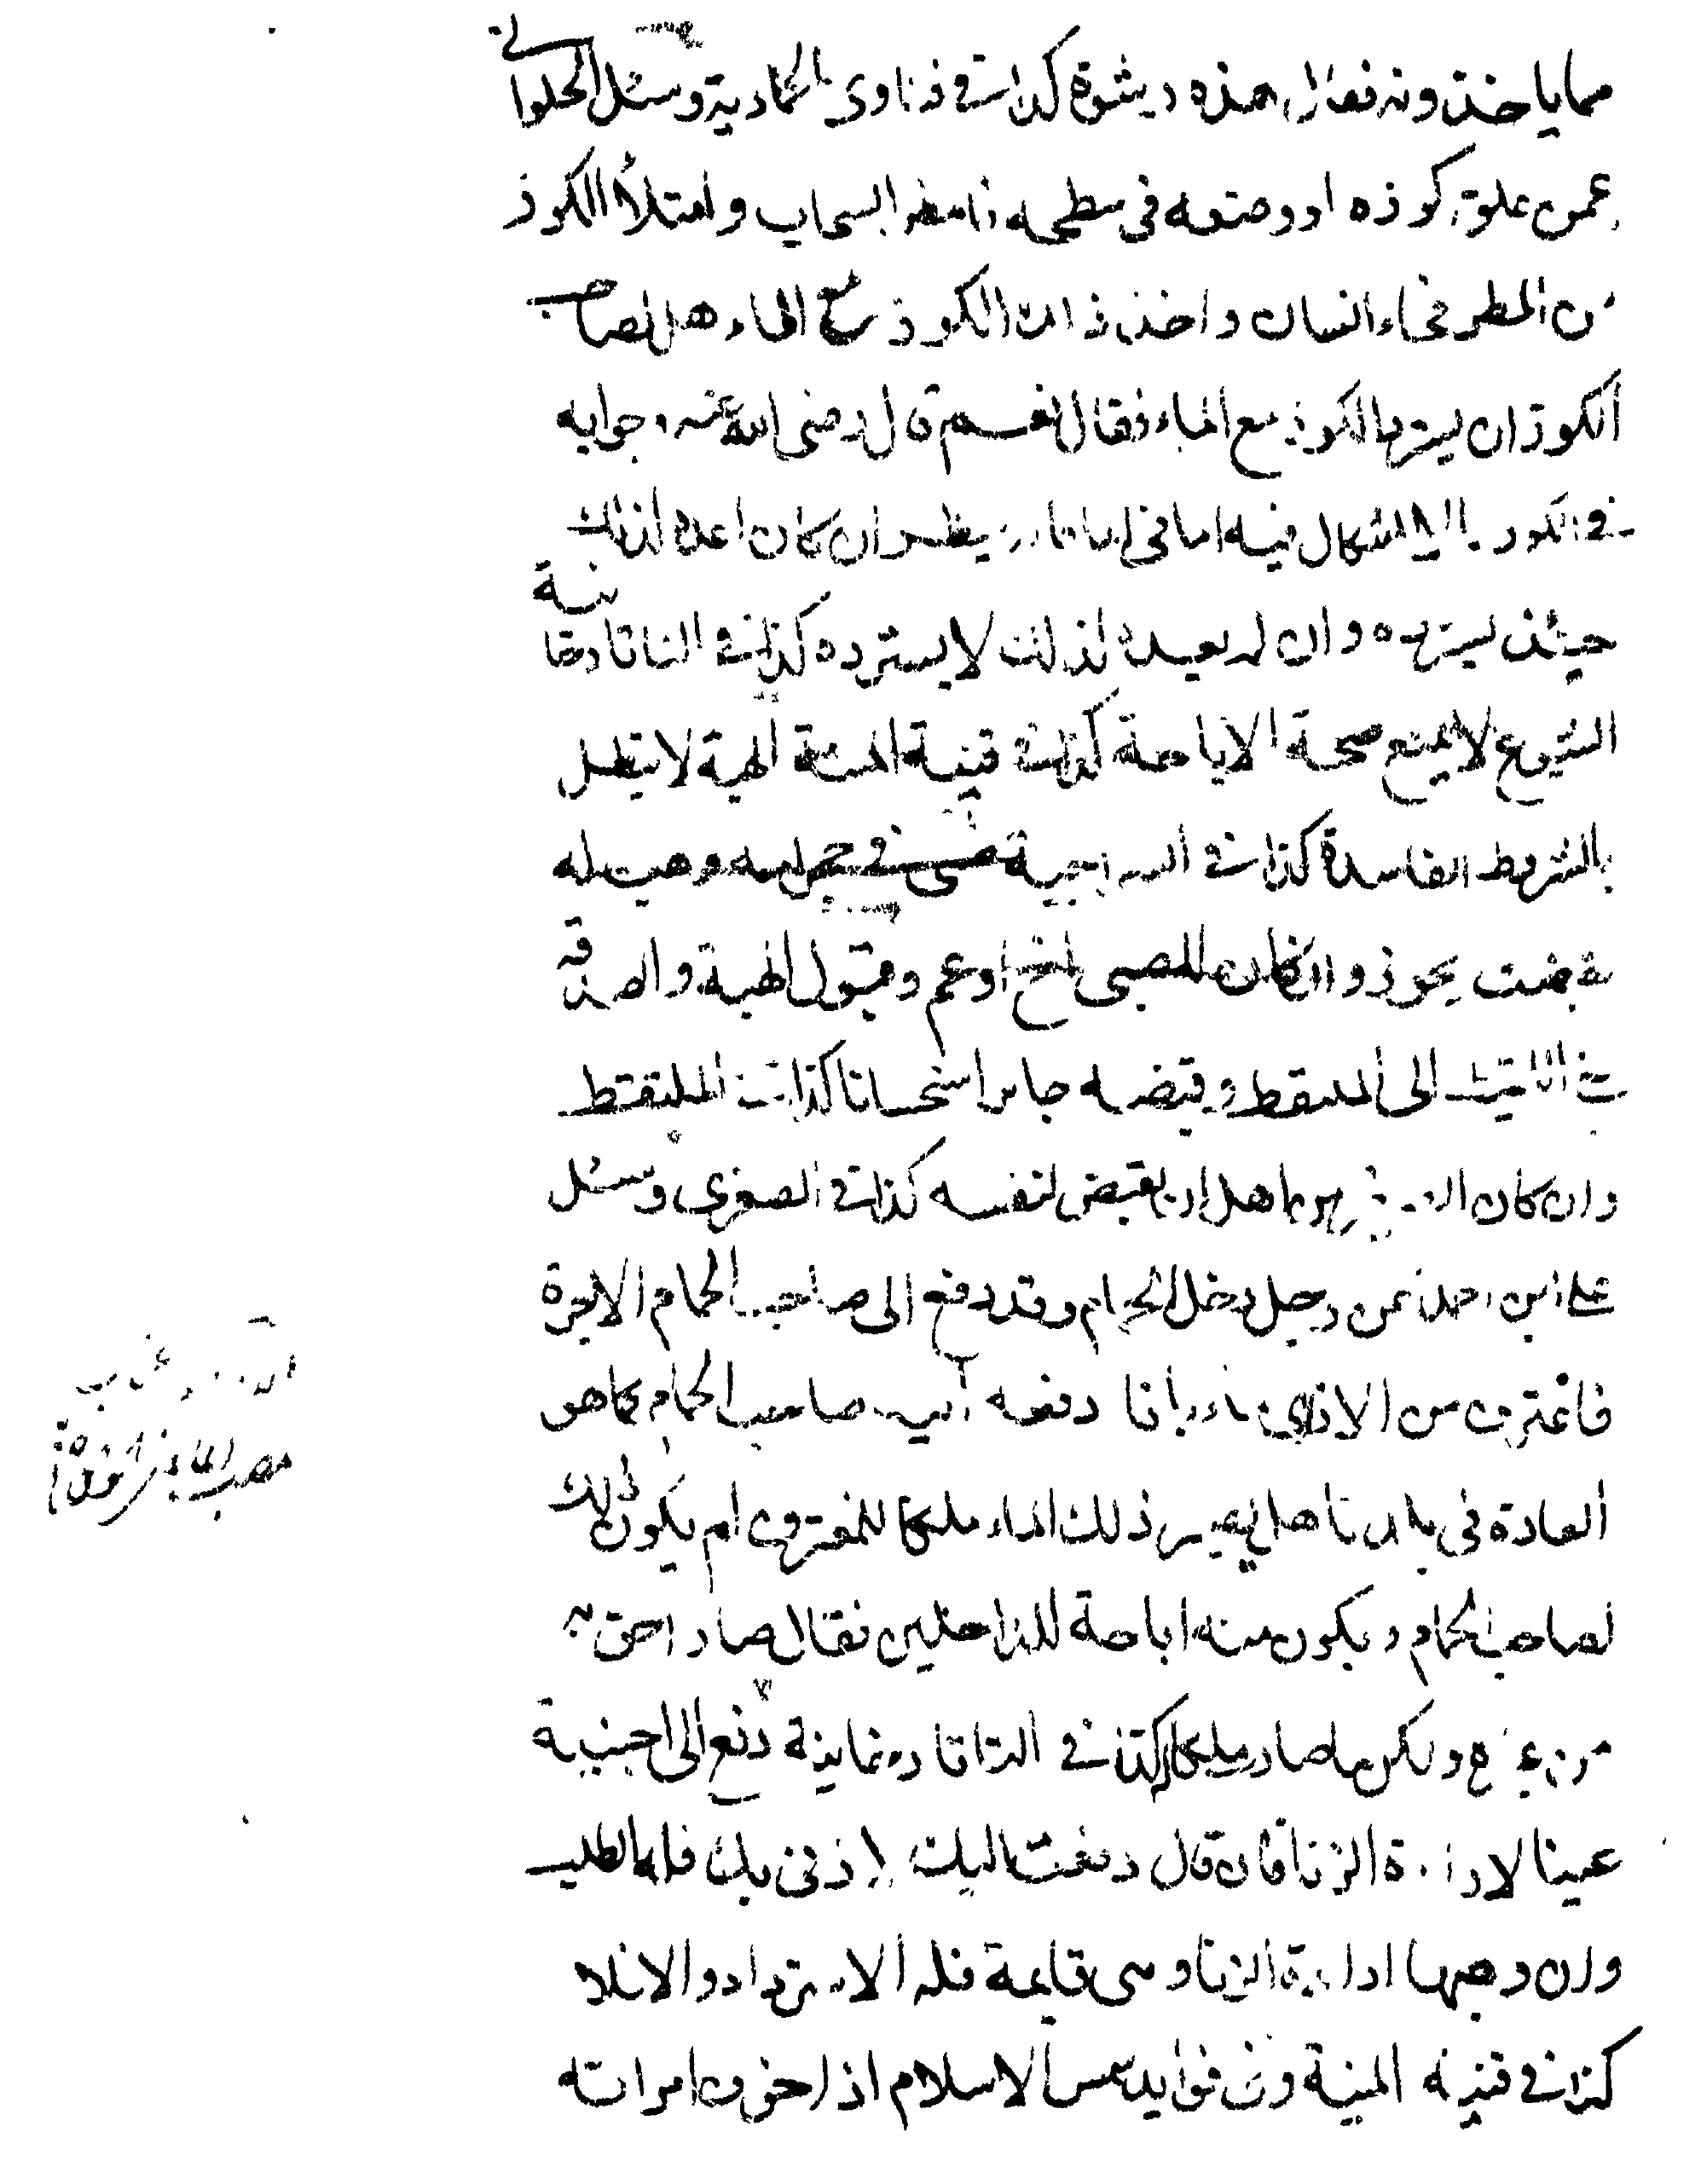 مما ياخذونه فقال هذه رشوة كذا في فتاوى الحمادية وسئل الحلواني
عمن علق كوزه او وضعه في سطحه فامطر السحاب وامتلأ الكوز
من المطر فجاء انسان واخذ ذلك الكوز مع الماء هل لصاحب
الكوز ان يسترد الكوز مع الماء فقال نعم قال رضي الله عنه وجوابه
في الكوز لا اشكال فيه اما في الماء ينظر ان كان اعده لذلك
حينئذ يسترده وان لم يعده لذلك لا يسترده كذا في التاتارخانية
الشيوع لا يمنع صحة الاباحة كذا في قنية المنية الهبة لا تبطل
بالشروط الفاسدة كذا في السراجية صبي في حجر عمه وهب له
فقبضت يجوز وان كان للصبي اخ او عم وقبول الهبة والصدقة
في اللقيط الى الملتقط وقبضه جايز استحسانا كذا في الملتقط
وان كان الصغير من اهل ان يقبض لنفسه كذا في الصغرى وسئل
علي ابن احمد عمن رجل دخل الحمام وقد دفع الى صاحب الحمام الاجرة
فاغترف من الاناء باناء دفعه اليه صاحب الحمام كما هو
العادة في بلادنا هل يصير ذلك الماء ملكا للمغترف ام يكون ذلك
لصاحب الحمام ويكون منه اباحة للداخلين فقال صار احق به
من غيره ولكن ما صار ملكا له كذا في التاتارخانية دفع الى اجنبية
عينا لارادة الزنا فان قال دفعت اليك لازني بك فله الطلب
وان وهبها لارادة الزنا وهي قايمة فله الاسترداد والا فلا
كذا في قنية المنية وفي فوايد شمس الاسلام اذا خوف امراته